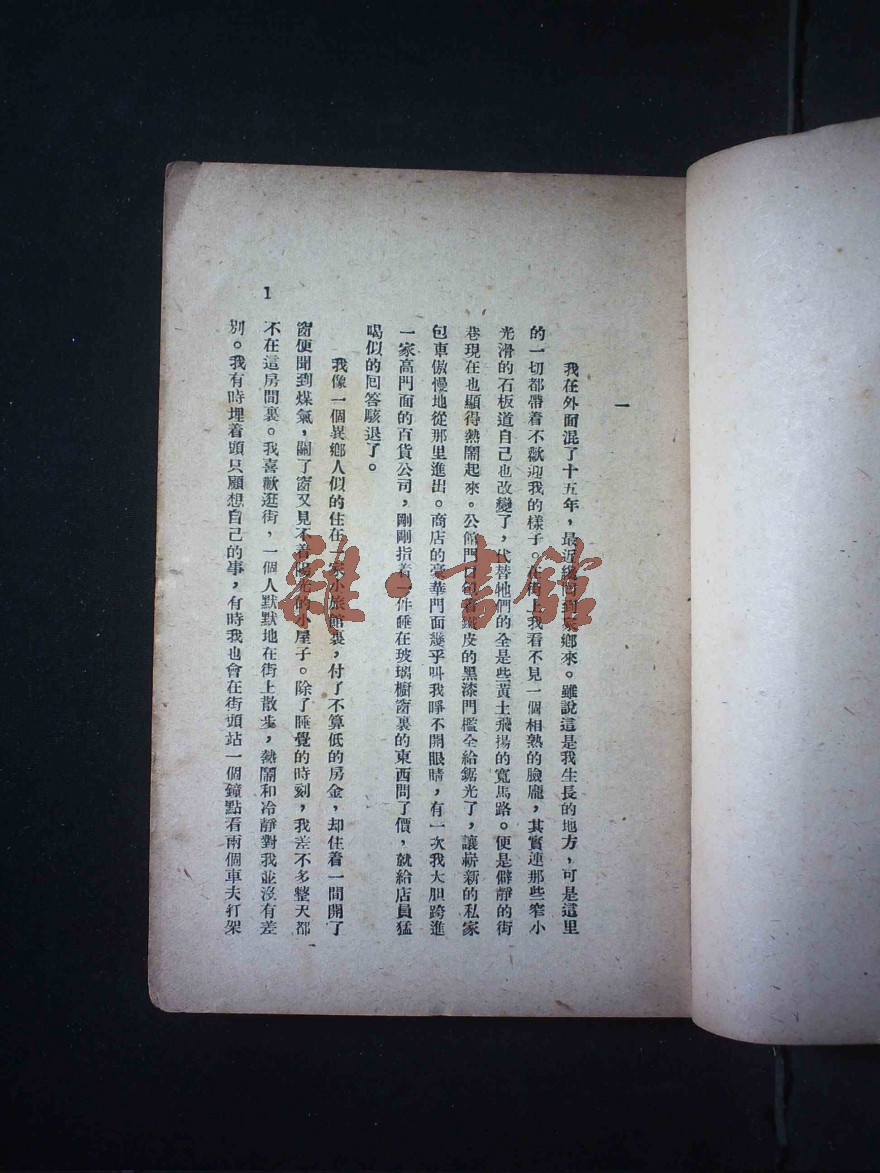 一
我在外面混了十五年，最近纔回到家鄉來。雖說這是我生長的地方，可是這里
的一切都帶着不歡迎我的樣子。在街上我看不見一個相熟的臉龐，其實連那些窄小
光滑的石板道自己也改變了，代替牠們的全是些黃土飛揚的寬馬路。便是僻靜的街
巷現在也顯得熱鬧起來。公館門口包着鐵皮的黑漆門檻全給鋸光了，讓嶄新的私家
包車傲慢地從那里進出。商店的豪華門面幾乎叫我睜不開眼睛，有一次我大胆跨進
一家高門面的百貨公司，剛剛指着一件睡在玻璃櫥窗裏的東西問了價，就給店員猛
喝似的回答駭退了。
我像一個異鄉人似的住在一家小旅館裏，付了不算低的房金，却住着一間開了
窗便聞到煤氣，關了窗又見不着陽光的小屋子。除了睡覺的時刻，我差不多整天都
不在這房間裏。我喜歡逛街，一個人默默地在街上散步，熱鬧和冷靜對我並沒有差
別。我有時埋着頭只顧想自己的事，有時我也會在街頭站一個鐘點看兩個車夫打架
1
雜·書館